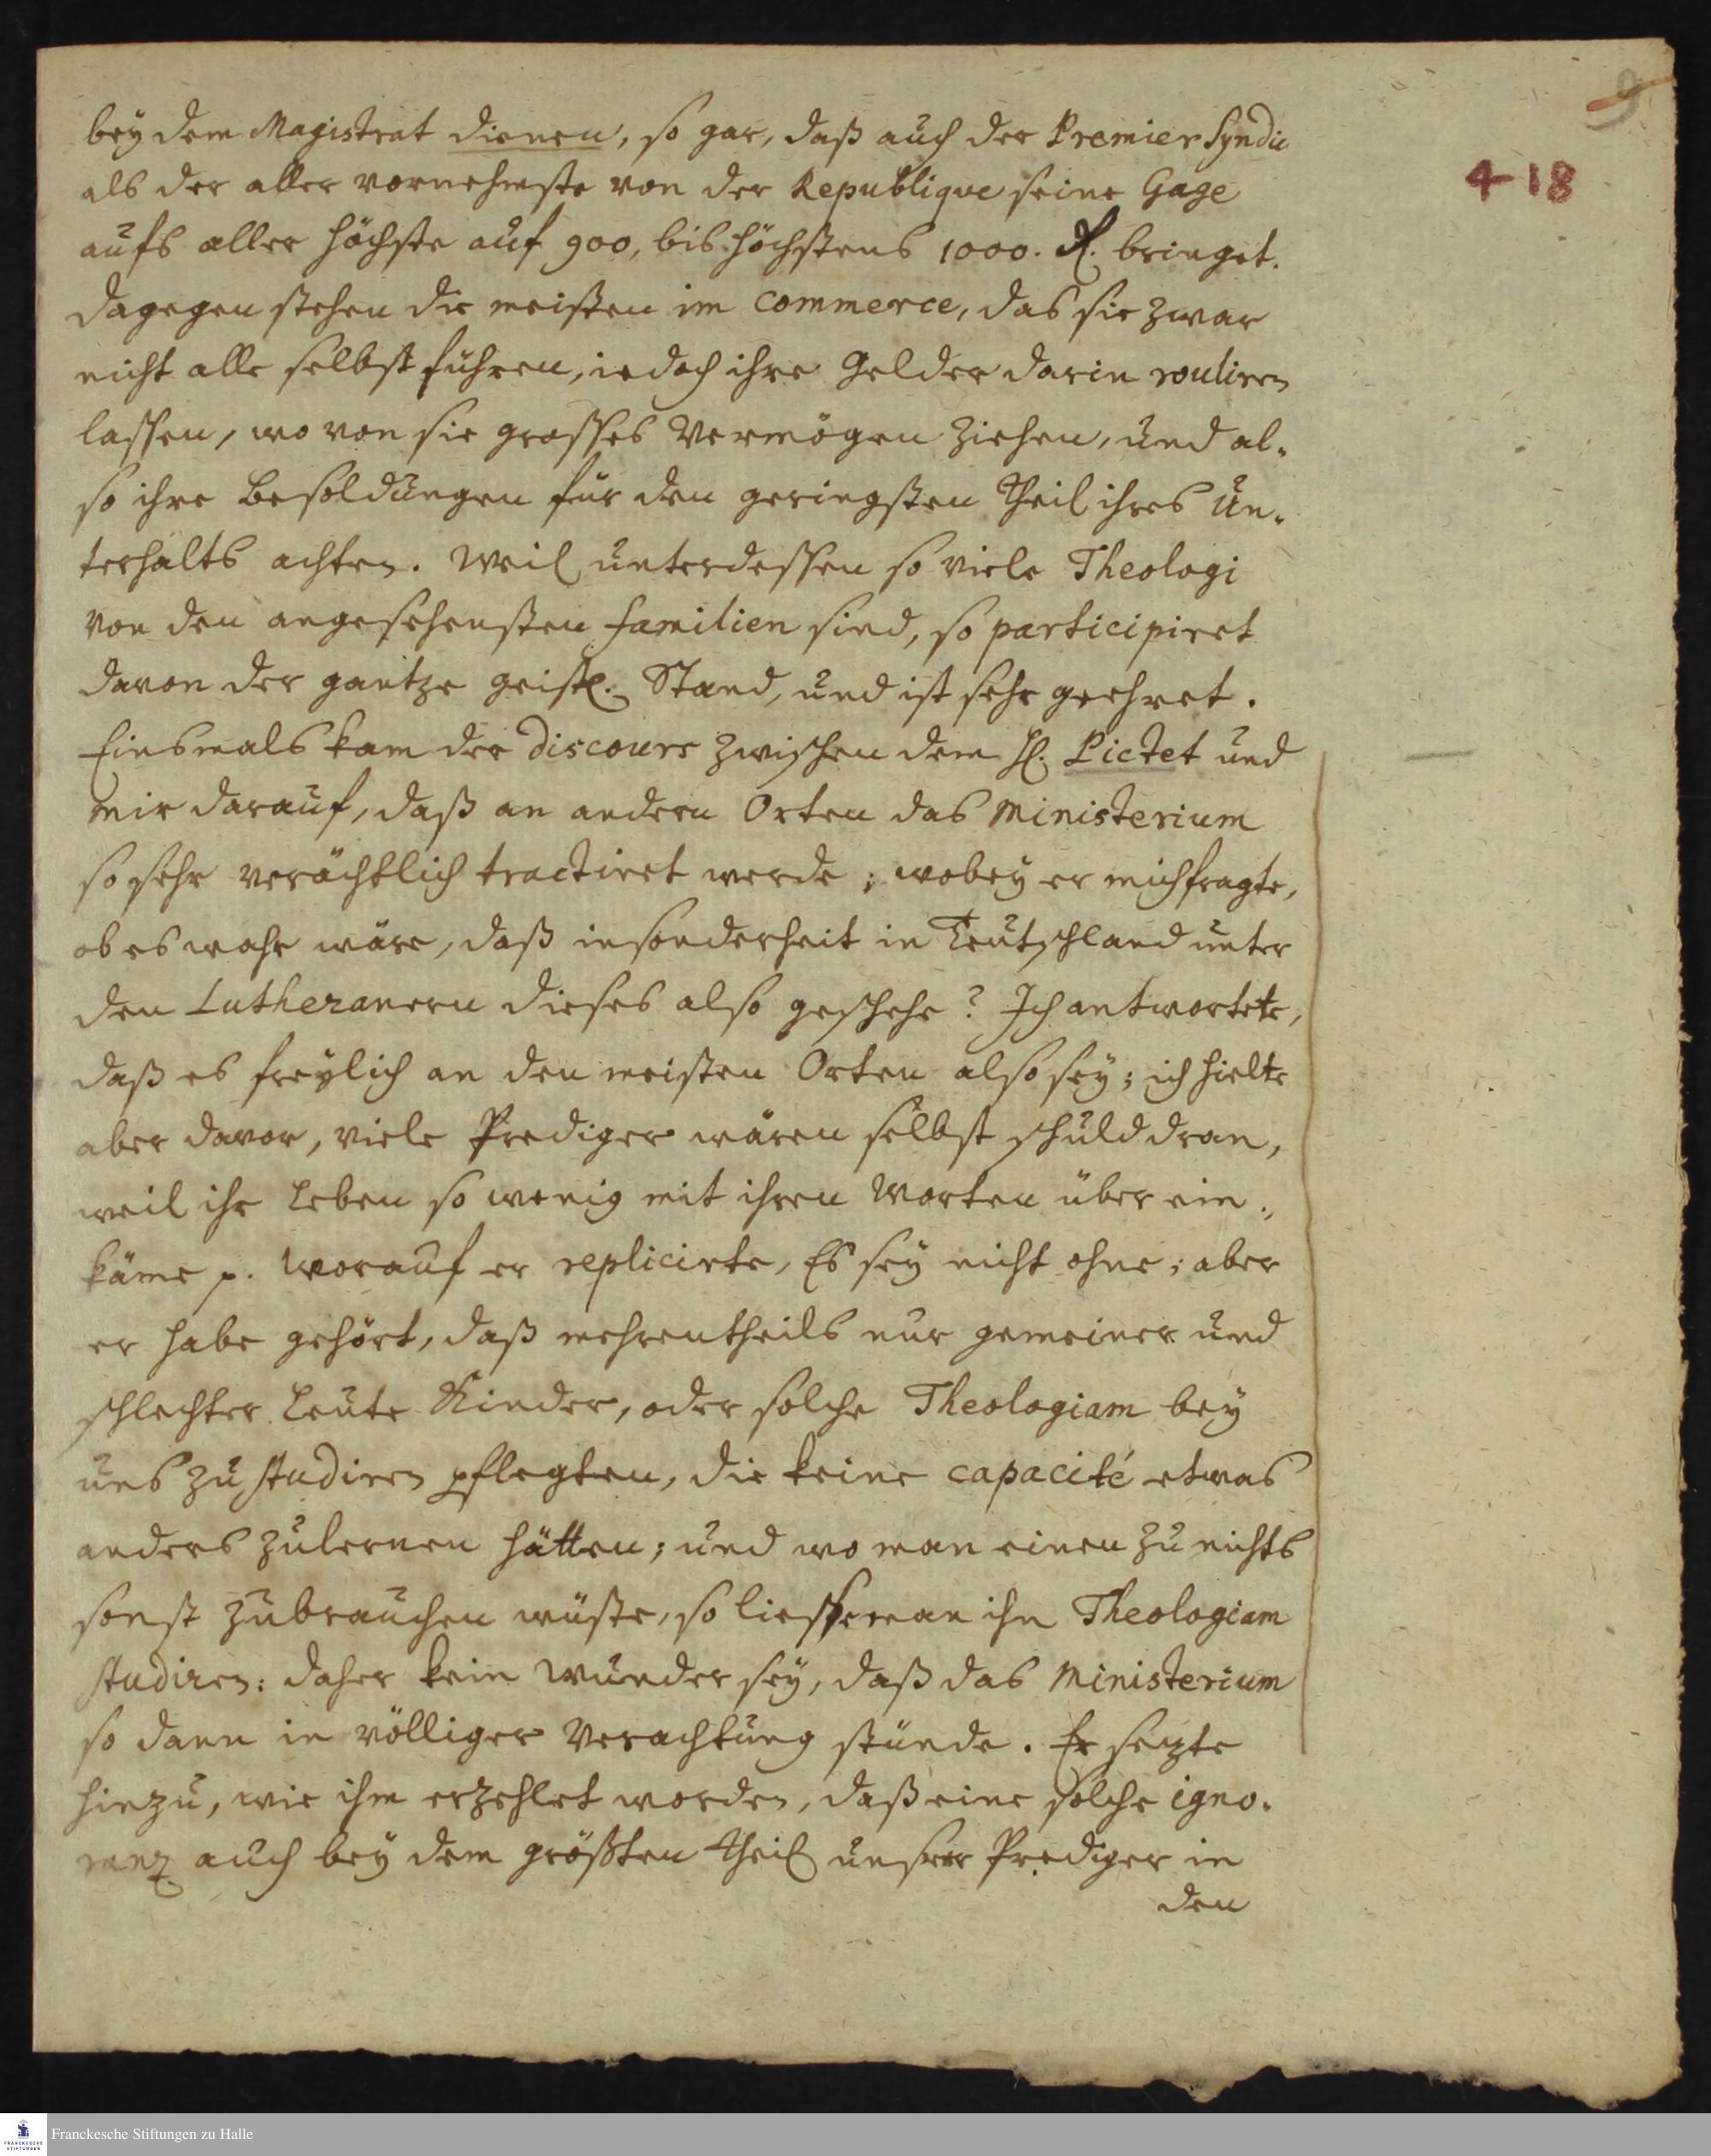 9
4-18
bey dem Magistrat dienen, so gar, daß auch der Premier Syndic
als der aller vornehmste von der Republique seine Gage
aufs aller höchste auf 900, bis höchstens 1000. fl. bringet.
dagegen stehen die meisten im Commerce, das sie zwar
nicht alle selbst führen, iedoch ihre Gelder darin rouliren
lassen, wovon sie grosses Vermögen ziehen, und al-
so ihre Besoldungen für den geringsten Theil ihres Un-
terhalts achten. Weil unterdessen so viele Theologi
von den angesehensten Familien sind, so participiret
davon der gantze geistl. Stand, und ist sehr geehret.
Einsmals kam der Discours zwischen dem H. Pictet und
mir darauf, daß an andern Orten das Ministerium
so sehr verächtlich tractiret werde; wobey er mich fragte,
ob es wahr wäre, daß insonderheit in Teutschland unter
den Lutheranern dieses also geschehe? Ich antwortete,
daß es freylich an den meisten Orten also sey; ich hielte
aber davor, viele Prediger wären selbst schuld dran,
weil ihr Leben so wenig mit ihren Worten über ein-
käme p. Worauf er replicirte, Es sey nicht ohne; aber
er habe gehört, daß mehrentheils nur gemeiner und
schlechter Leute Kinder, oder solche Theologiam bey
uns zu studiren pflegten, die keine capacité etwas
anders zulernen hätten; und wo man einen zu nichts
sonst zubrauchen wüste, so liesse man ihn Theologiam
studiren: daher kein Wunder sey, daß das Ministerium
so dann in völliger Verachtung stünde. Er setzte
hinzu, wie ihm erzehlet worden, daß eine solche igno-
ranz auch bey dem größten Theil unserer Prediger in
den
Franckesche Stiftungen zu Halle
FRANCKESCHE
STIFTUNGEN